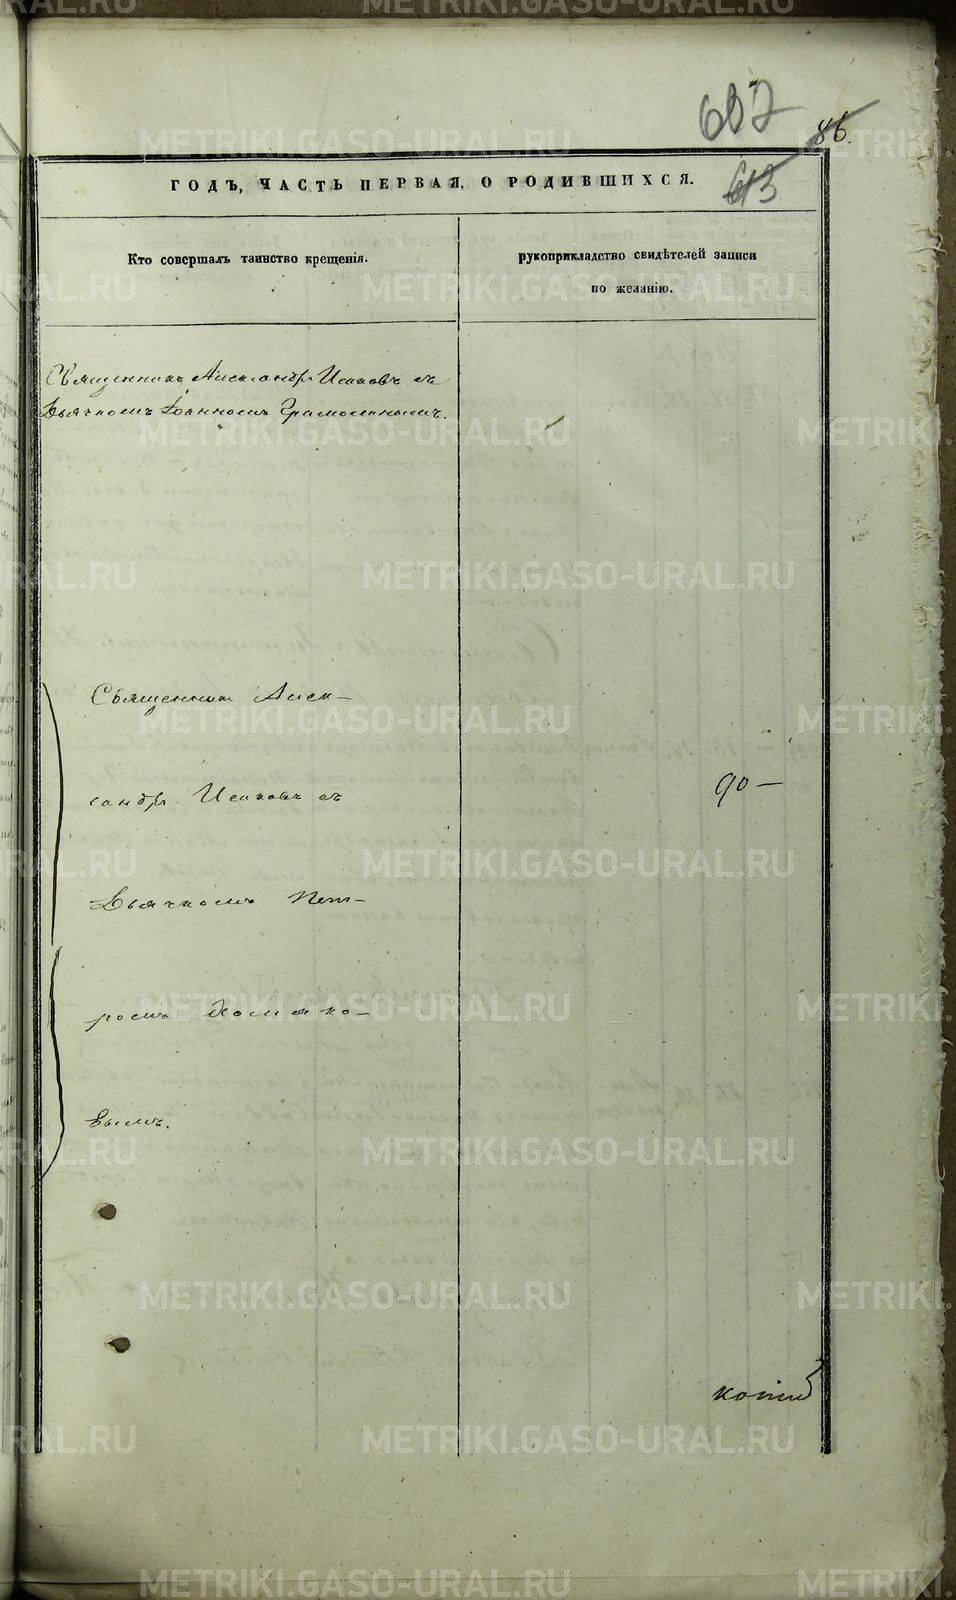 687
86.
613
ГОДЪ, ЧАСТЬ ПЕРВАЯ, О РОДИВШИХСЯ.
Кто совершалъ таинство крещенія.
рукоприкладство свидѣтелей записи
по желанію.
Священникъ Александръ Исаковъ съ
Дьячкомъ Іоанномъ Грамолинымъ.
Священникъ Алек-
сандръ Исаковъ съ
90 —
Дьячкомъ Пет-
ромъ Хомяко-
вымъ.
копіи
METRIKI.GASO-URAL.RU